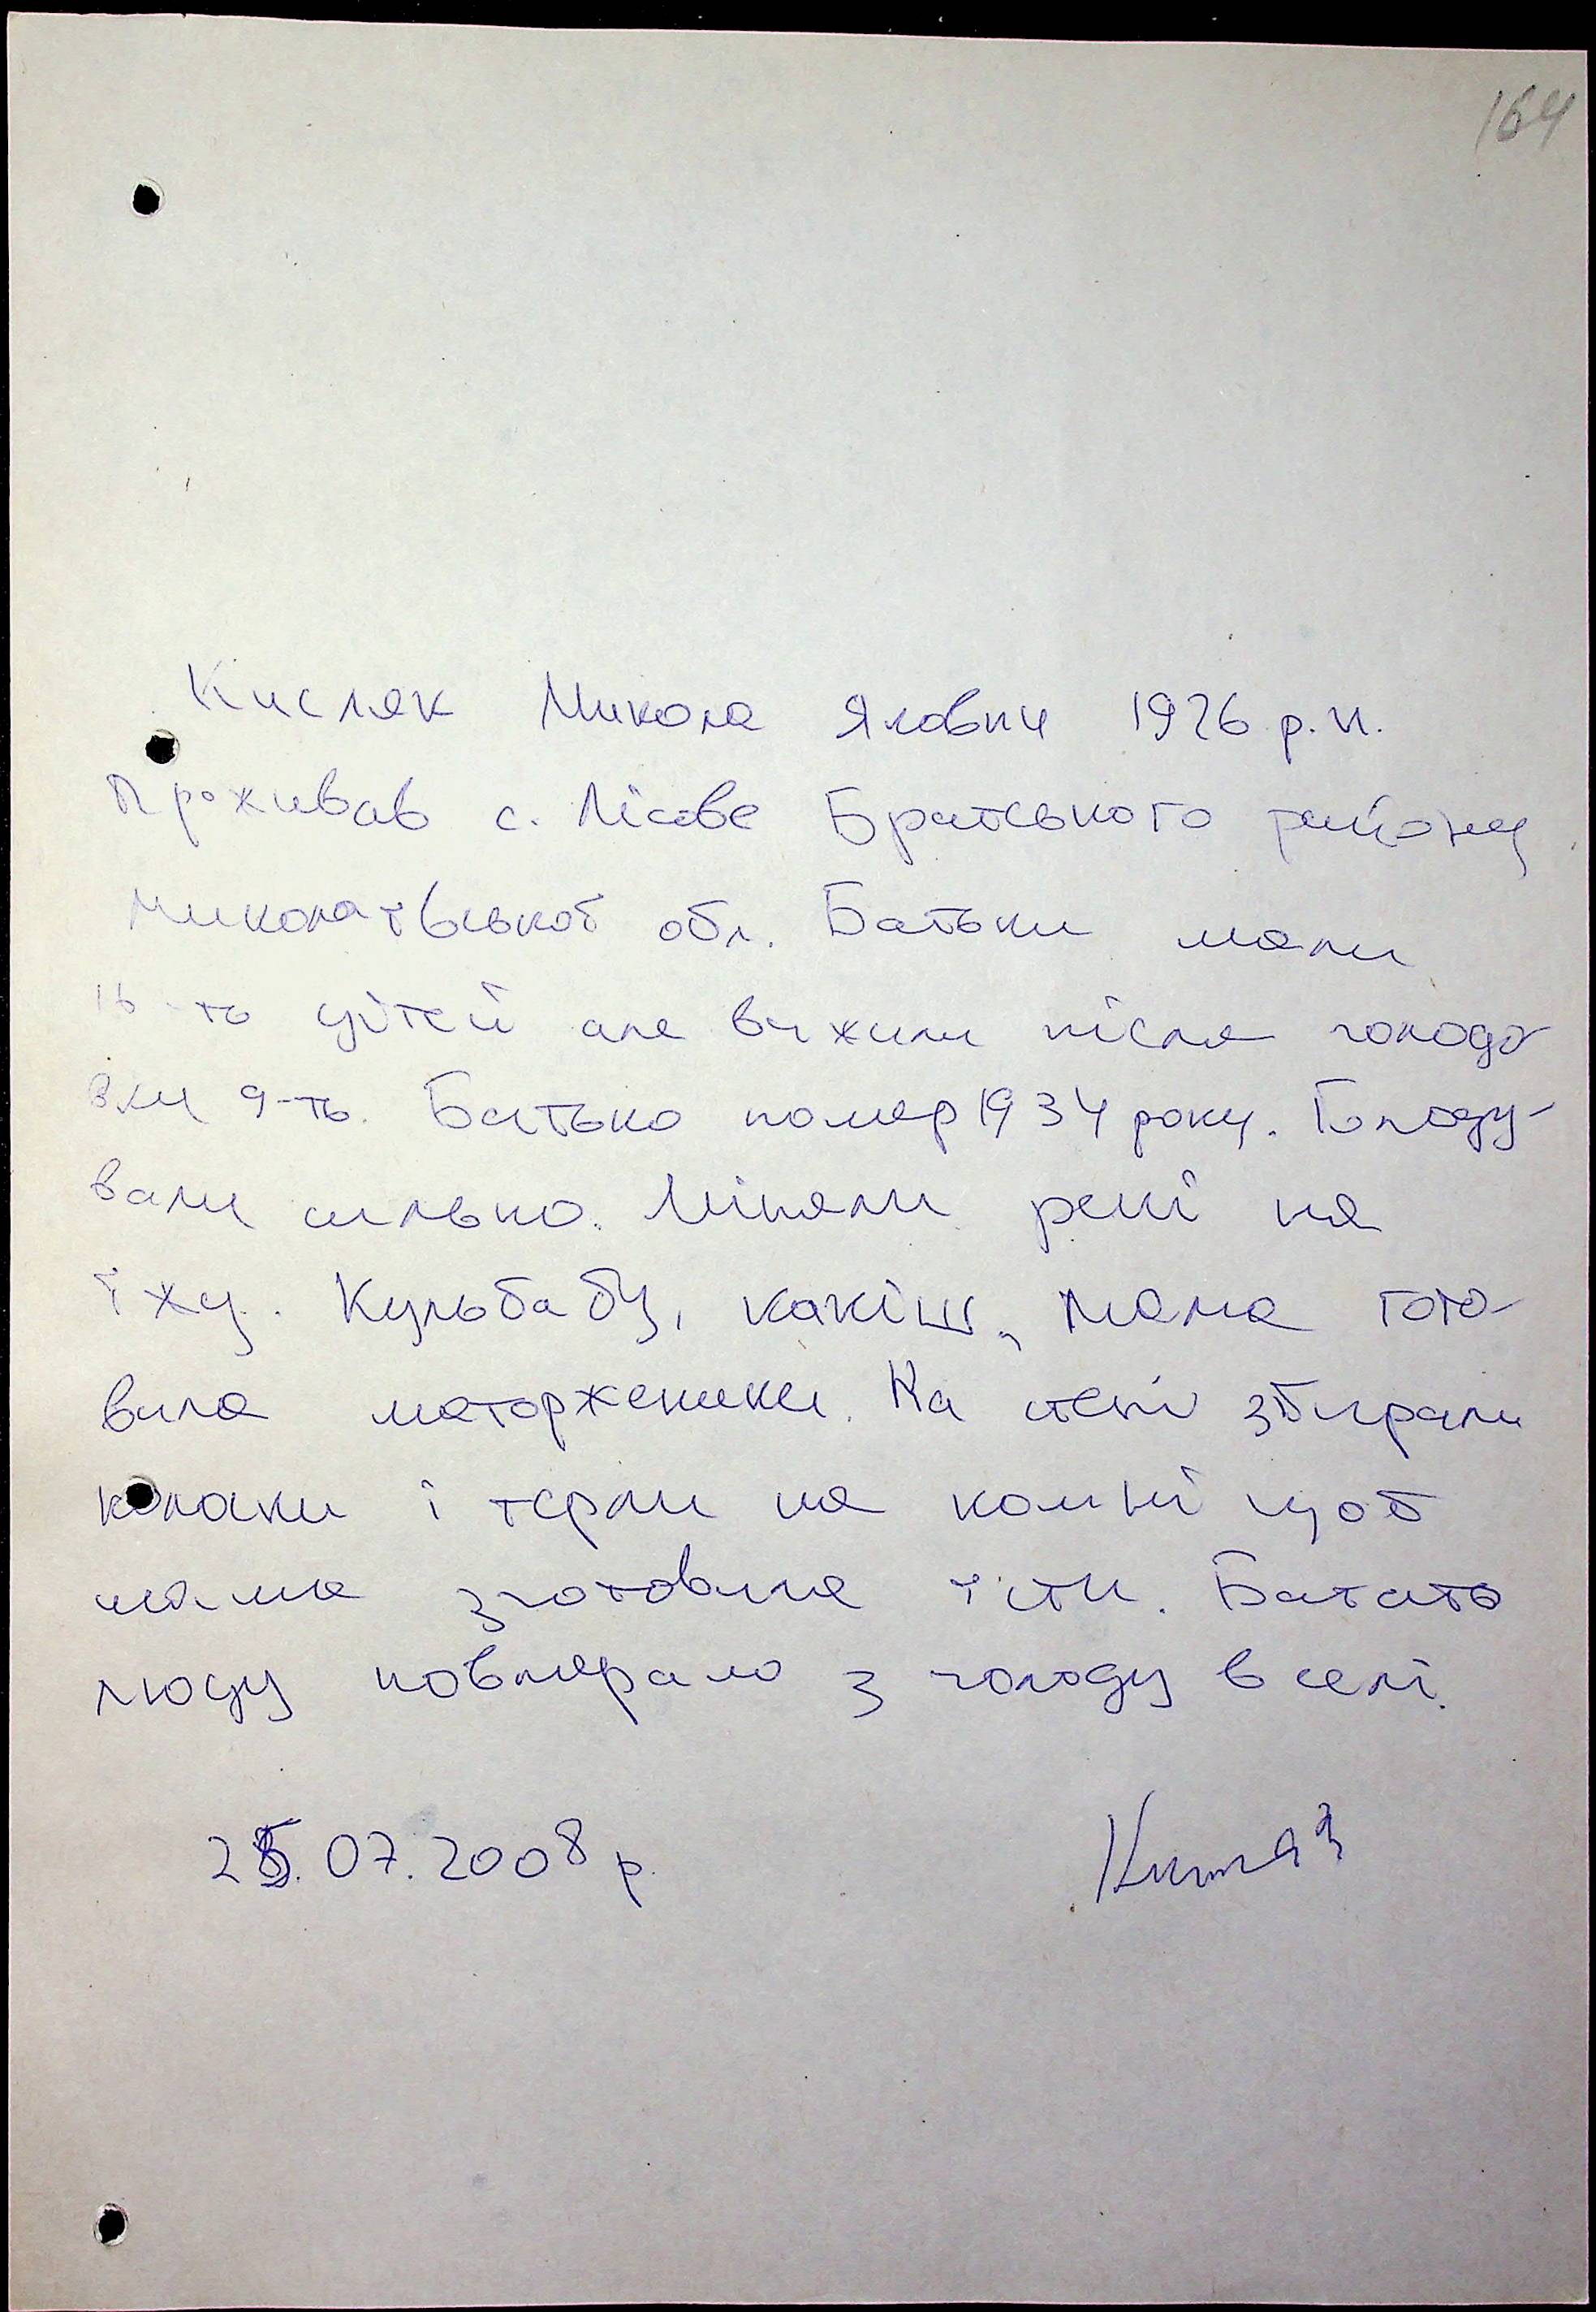 164
Кисляк Микола Якович 1926 р.н.
Проживав с. Лісове Братського району
Миколаївської обл. Батьки мали
16-ть дітей але вижили після голодо
вки 9-ть. Батько помер 1934 року. Голоду-
вали сильно. Міняли речі на
їжу. Кульбабу, качіш, Мама гото-
вила маторженики. На степі збирали
колоски і терли на камні щоб
мама зготовила їсти. Багато
люду повмерало з голоду в селі.
25.07.2008 р.